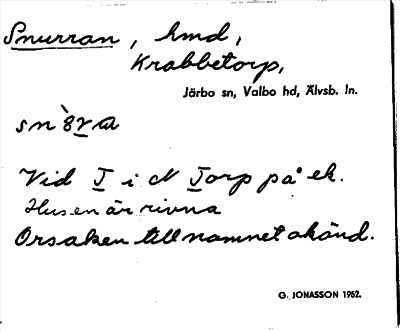 Snurran, hmd,
Krabbetorp,
Järbo sn, Valbo hd, Älvsb. ln.
Vid I i N Torp på ek.
Husen är rivna
Orsaken till namnet okänd.
G. JONASSON 1952.